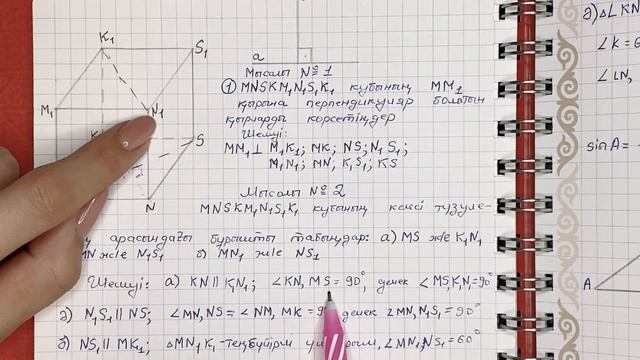 K₁
S₁
M₁
N₁
K
S
N
a
Мысалы №1
① MNSKM₁N₁S₁K₁ кубының MM₁
қырына перпендикуляр болатын
қырларды көрсетіңдер
Шешуі:
MM₁ ⊥ M₁K₁; MK; NS; N₁S₁;
M₁N₁; MN, K₁S₁; KS
Мысалы №2
MNSKM₁N₁S₁K₁ кубының келесі түзуле-
арасындағы бұрышты табыңдар: а) MS және K₁N₁
MN және N₁S₁ б) MN₁ және NS₁
Шешуі: а) KN ∥ K₁N₁; ∠KN, MS = 90°, демек ∠MS, K₁N₁ = 90°
ә) N₁S₁ ∥ NS; ∠MN, NS = ∠NM, MK = 9 демек ∠MN, N₁S₁ = 90°
б) NS₁ ∥ MK₁; ΔMN₁K₁ - теңбүйірлі ∠MN₁, NS₁ = 60°
ә) Δ∠KN
∠K = 6
∠LN,
sin A =
A